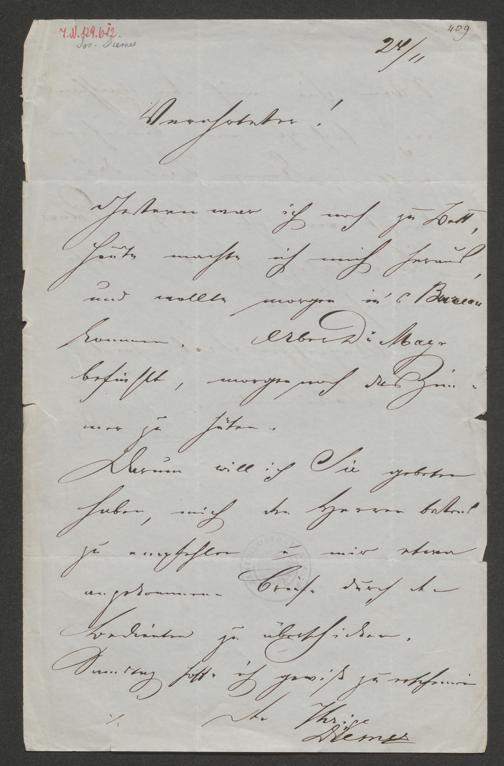 409
J.N. 129.672.
Jos. Diemer
24/11
Verehrtester!
Gestern war ich noch zu Bett,
heute machte ich mich heraus,
und wollte morgen in's Bureau
kommen. Aber Dr Mayr
befiehlt, morgen noch das Zim-
mer zu hüten.
Darum will ich Sie gebeten
haben, mich den Herren
zu empfehlen u mir etwa
angekommene Briefe durch den
Bedienten zu überschicken.
Samstag hoffe ich gewiß zu erscheinen
Der Ihrige
Diemer